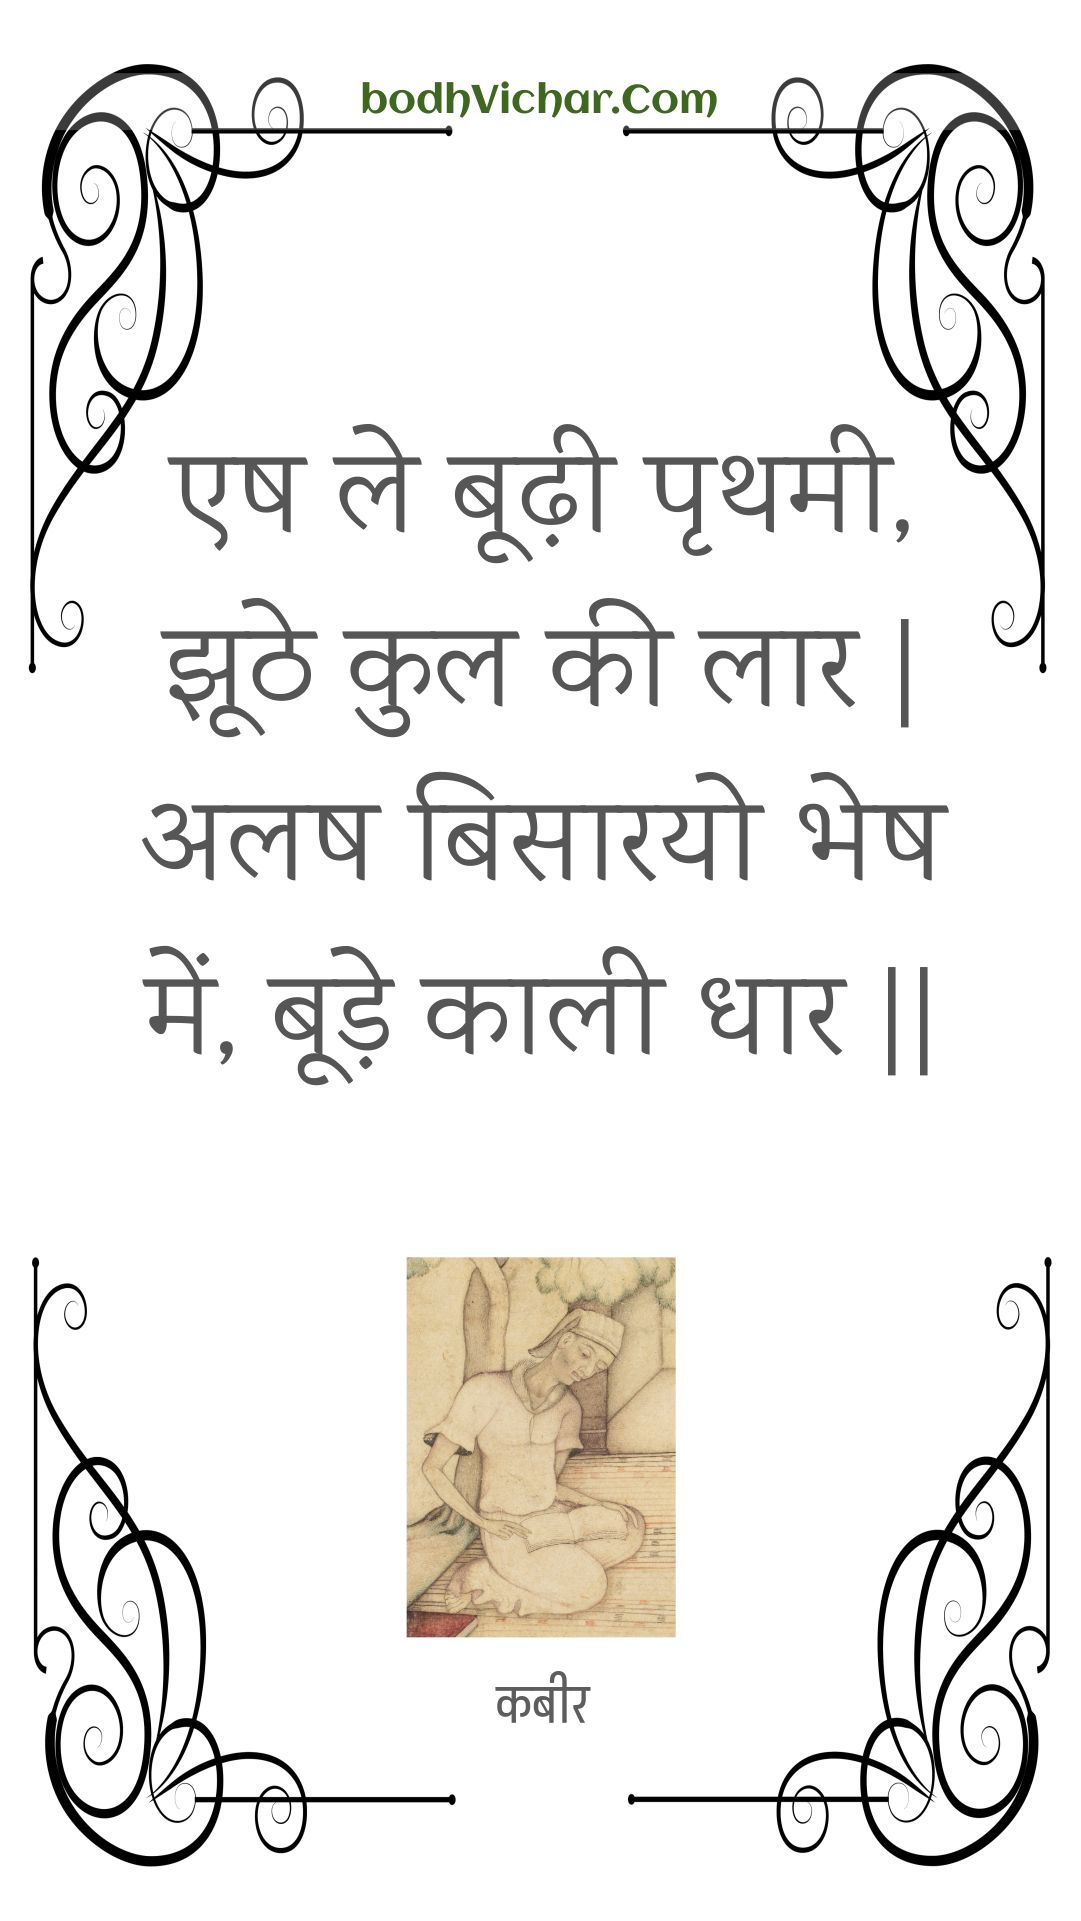 bodhVichar.Com
एष ले बूढ़ी पृथमी,
झूठे कुल की लार |
अलष बिसारयो भेष
में, बूड़े काली धार ||
कबीर